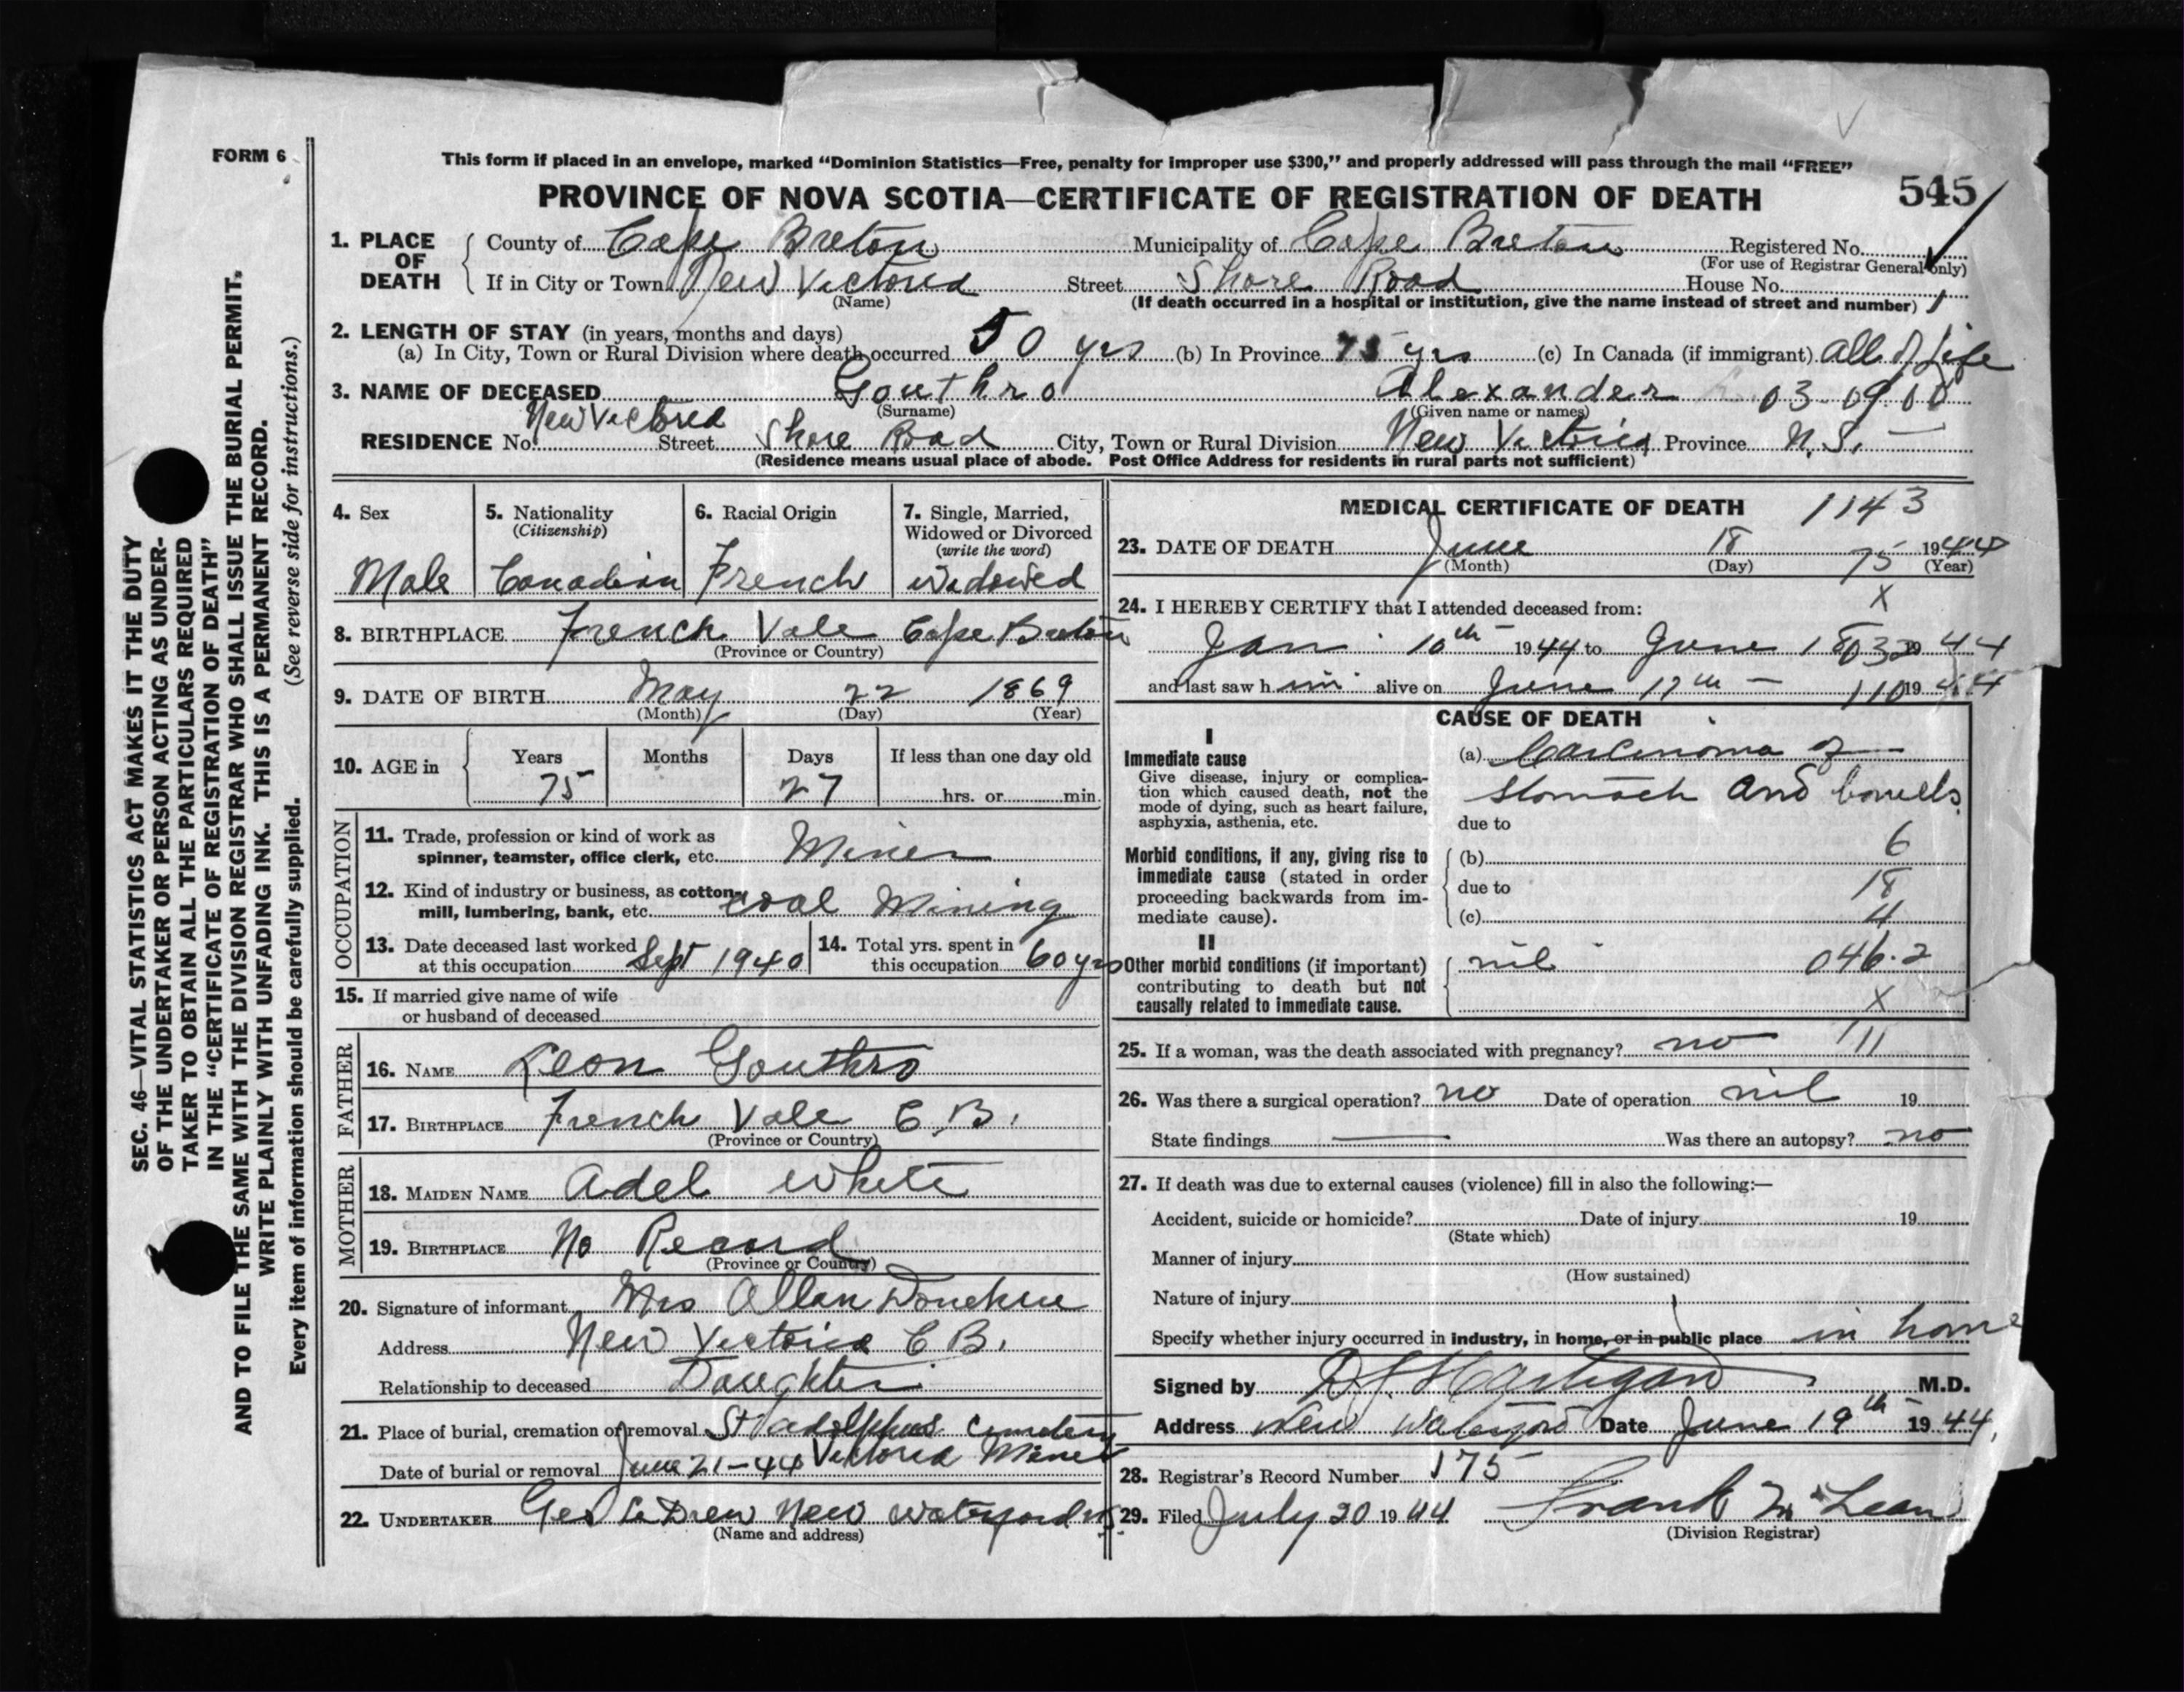 FORM 6
This form if placed in an envelope, marked “Dominion Statistics—Free, penalty for improper use $300,” and properly addressed will pass through the mail “FREE”
PROVINCE OF NOVA SCOTIA—CERTIFICATE OF REGISTRATION OF DEATH 545
1. PLACE OF DEATH County of Cape Breton Municipality of Cape Breton Registered No.
(For use of Registrar General only)
If in City or Town New Victoria Street Shore Road House No.
(Name) (If death occurred in a hospital or institution, give the name instead of street and number)
2. LENGTH OF STAY (in years, months and days)
(a) In City, Town or Rural Division where death occurred 50 yrs (b) In Province 75 yrs (c) In Canada (if immigrant) All of Life
3. NAME OF DECEASED Gouthro Alexander 03 09 00
(Surname) (Given name or names)
New Victoria
RESIDENCE No. Street Shore Road City, Town or Rural Division New Victoria Province N.S.
(Residence means usual place of abode. Post Office Address for residents in rural parts not sufficient)
4. Sex 5. Nationality 6. Racial Origin 7. Single, Married,
(Citizenship) Widowed or Divorced
(write the word)
Male Canadian French Widowed
8. BIRTHPLACE French Vale Cape Breton
(Province or Country)
9. DATE OF BIRTH May 22 1869
(Month) (Day) (Year)
10. AGE in Years Months Days If less than one day old
75 27 hrs. or min.
OCCUPATION
11. Trade, profession or kind of work as
spinner, teamster, office clerk, etc. Miner
12. Kind of industry or business, as cotton-
mill, lumbering, bank, etc. Coal Mining
13. Date deceased last worked
at this occupation Sept 1940
14. Total yrs. spent in
this occupation 60 yrs
15. If married give name of wife
or husband of deceased
FATHER
16. NAME Leon Gouthro
17. BIRTHPLACE French Vale C.B.
(Province or Country)
MOTHER
18. MAIDEN NAME Adel White
19. BIRTHPLACE No Record
(Province or Country)
20. Signature of informant Mrs Allan Donehue
Address New Victoria C B.
Relationship to deceased Daughter
21. Place of burial, cremation or removal St Adolphus Cemetery
Victoria Mines
Date of burial or removal June 21-44
22. UNDERTAKER Geo LeDrew New Waterford N.S.
(Name and address)
MEDICAL CERTIFICATE OF DEATH 1143
23. DATE OF DEATH June 18 75 1944
(Month) (Day) (Year)
X
24. I HEREBY CERTIFY that I attended deceased from:
Jan 10th 1944 to June 18 032 1944
and last saw him alive on June 17th 110 1944
CAUSE OF DEATH
I
Immediate cause
Give disease, injury or complica-
tion which caused death, not the
mode of dying, such as heart failure,
asphyxia, asthenia, etc.
(a) Carcinoma of
stomach and bowels
due to
Morbid conditions, if any, giving rise to
immediate cause (stated in order
proceeding backwards from im-
mediate cause).
(b) 6
due to 18
(c) 4
II
Other morbid conditions (if important)
contributing to death but not
causally related to immediate cause.
nil 046.2
X
25. If a woman, was the death associated with pregnancy? no 111
26. Was there a surgical operation? no Date of operation nil 19
State findings — Was there an autopsy? no
27. If death was due to external causes (violence) fill in also the following:—
Accident, suicide or homicide? Date of injury 19
(State which)
Manner of injury
(How sustained)
Nature of injury
Specify whether injury occurred in industry, in home, or in public place in home
Signed by D J Hartigan M.D.
Address New Waterford Date June 19th 1944
28. Registrar's Record Number 175
29. Filed July 20 1944 Frank McLean
(Division Registrar)
SEC. 46—VITAL STATISTICS ACT MAKES IT THE DUTY
OF THE UNDERTAKER OR PERSON ACTING AS UNDER-
TAKER TO OBTAIN ALL THE PARTICULARS REQUIRED
IN THE “CERTIFICATE OF REGISTRATION OF DEATH”
AND TO FILE THE SAME WITH THE DIVISION REGISTRAR WHO SHALL ISSUE THE BURIAL PERMIT.
WRITE PLAINLY WITH UNFADING INK. THIS IS A PERMANENT RECORD.
Every item of information should be carefully supplied. (See reverse side for instructions.)